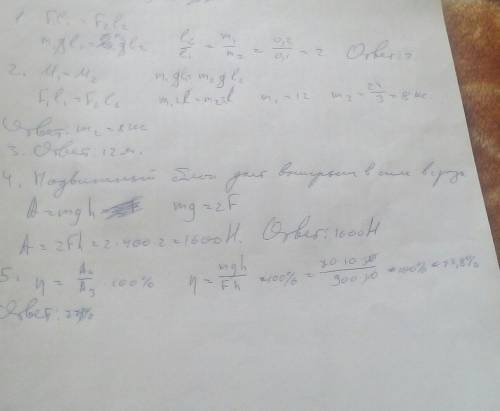 1. F₁l₁ = F₂l₂
m₁gl₁ = m₂gl₂ l₂/l₁ = m₁/m₂ = 0,2/0,1 = 2 Ответ: 2
2. M₁ = M₂ m₁gl₁ = m₂gl₂
F₁l₁ = F₂l₂ m₁ = 12 m₂ = 24/3 = 8 кг.
Ответ: m₂ = 8 кг
3. Ответ: 12 м.
4. Подвижный блок дает выигрыш в силе в 2 раза
A = mgh mg = 2F
A = 2Fh = 2·400·2 = 1600 Н. Ответ: 1600 Н
5. η = ·100% η = mgh/Fh ·100% =
Ответ: